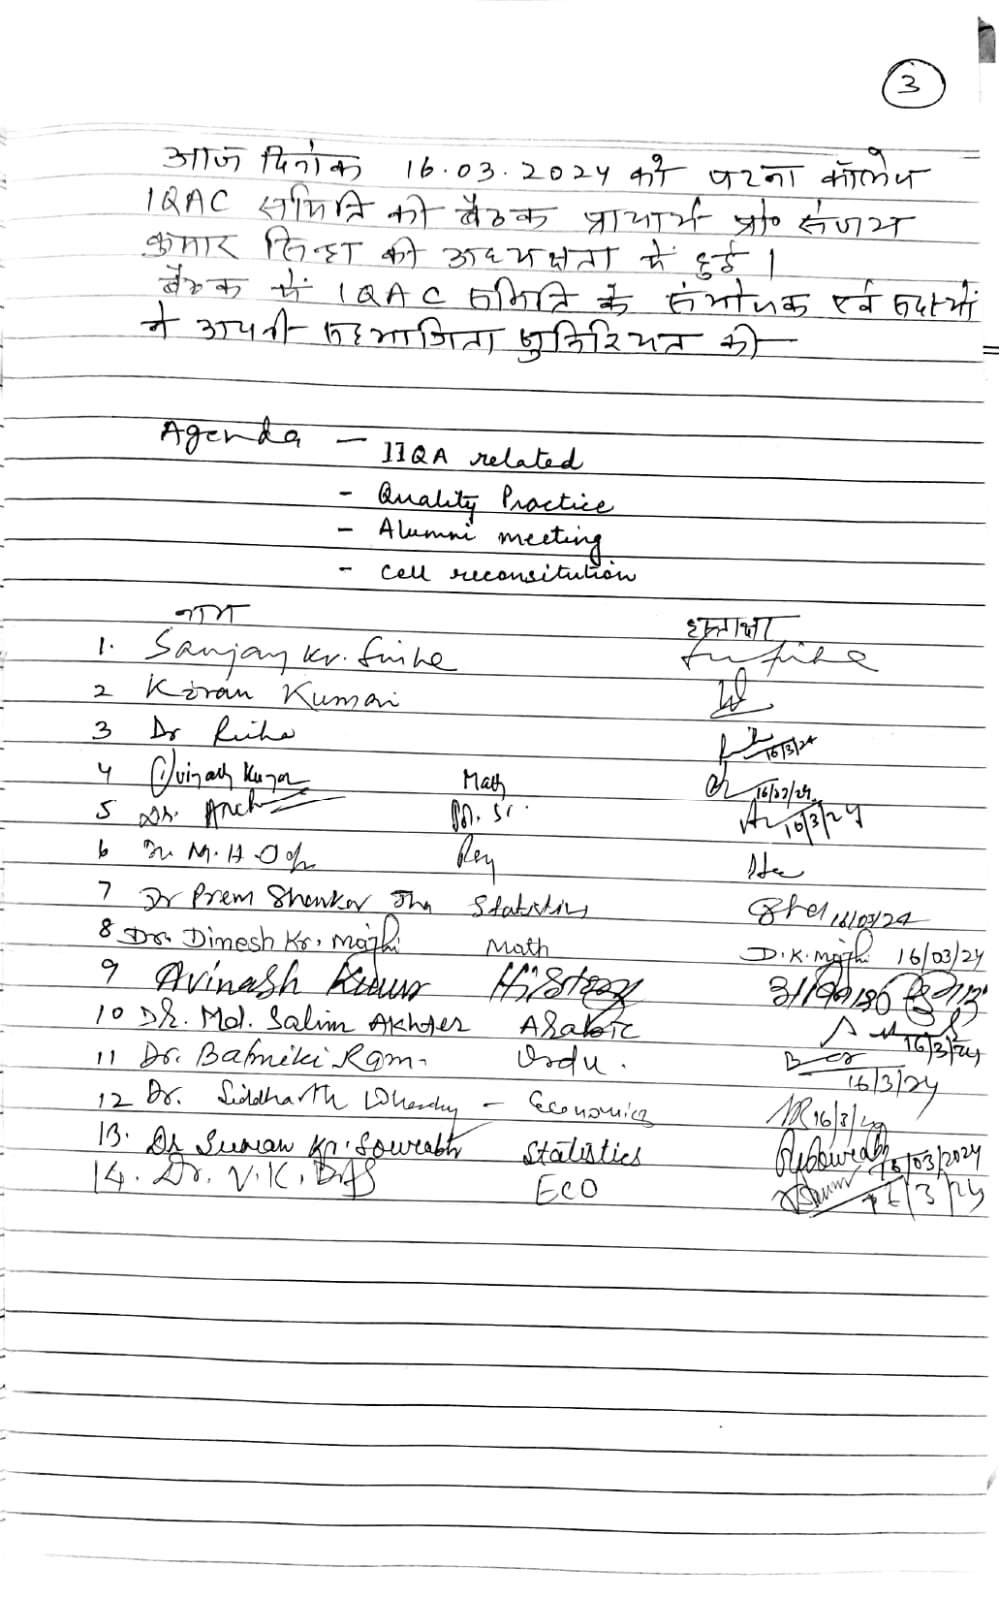 3
आज दिनांक 16.03.2024 को पटना कॉलेज
IQAC समिति की बैठक प्राचार्य प्रो० संजय
कुमार सिन्हा की अध्यक्षता में हुई।
बैठक में IQAC समिति के संयोजक एवं सदस्यों
ने अपनी सहभागिता सुनिश्चित की
Agenda - IIQA related
- Quality Practice
- Alumni meeting
- Cell reconsitution
नाम हस्ताक्षर
1. Sanjay Kr. Sinha
2 Kiran Kumari
3 Dr 16/3/24
4 Avinash Kumar Math
5 Dr. 16/3/24
6 M. H.
7 Dr Prem Shankar Jha Statistics 16/03/24
8 Dr. Dinesh Kr. Majhi Math D. K. Majhi 16/03/24
9 Avinash Kumar History
10 Dr. Md. Salim Akhter Arabic 16/3/24
11 Dr. Balmiki Ram Urdu. 16/3/24
12 Dr. Siddharth - Economics 16/3/24
13. Dr Suman Kr. Sourabh Statistics 16/03/2024
14. Dr. V. K. ECO 16/3/24